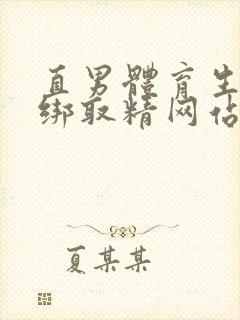 直男體育生
绑取精网佔
夏某某